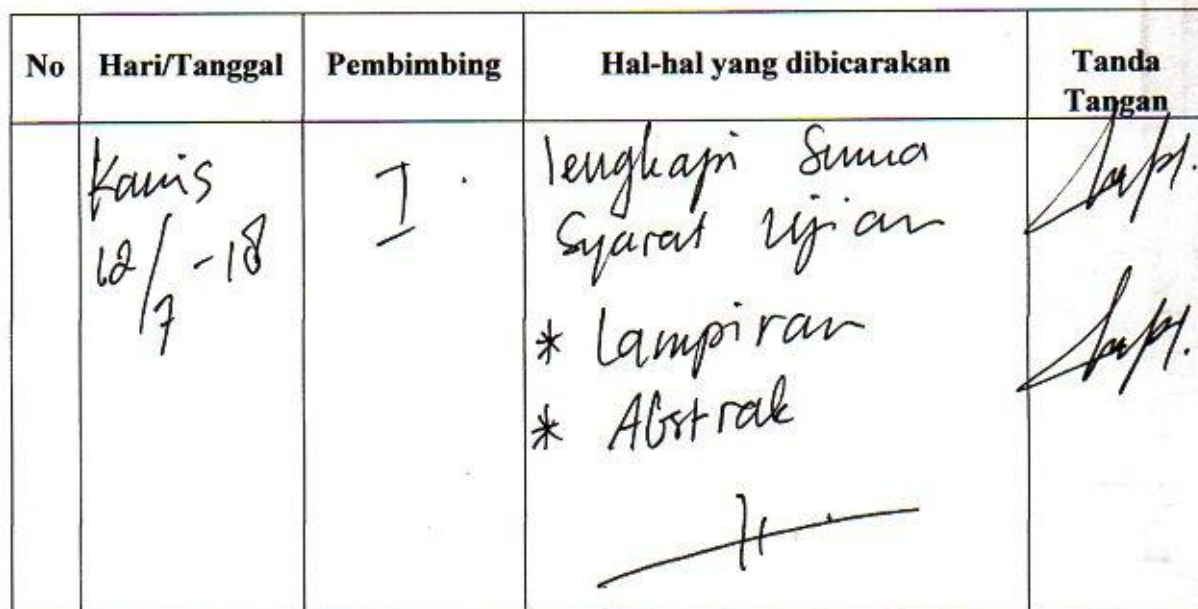 No Hari/Tanggal Pembimbing Hal-hal yang dibicarakan Tanda Tangan
Kamis
12/7-18
I.
lengkapi Semua
Syarat Ujian
* Lampiran
* Abstrak